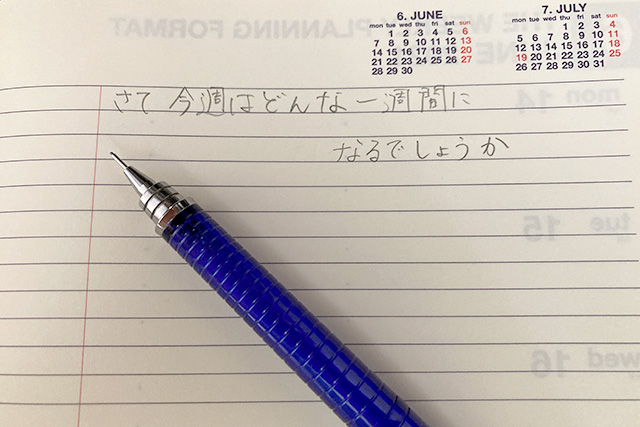 6. JUNE
mon tue wed thu fri sat sun
1 2 3 4 5 6
7 8 9 10 11 12 13
14 15 16 17 18 19 20
21 22 23 24 25 26 27
28 29 30
7. JULY
mon tue wed thu fri sat sun
1 2 3 4
5 6 7 8 9 10 11
12 13 14 15 16 17 18
19 20 21 22 23 24 25
26 27 28 29 30 31
PLANNING FORMAT
さて 今週はどんな一週間に
なるでしょうか
mon 14
tue 15
wed 16